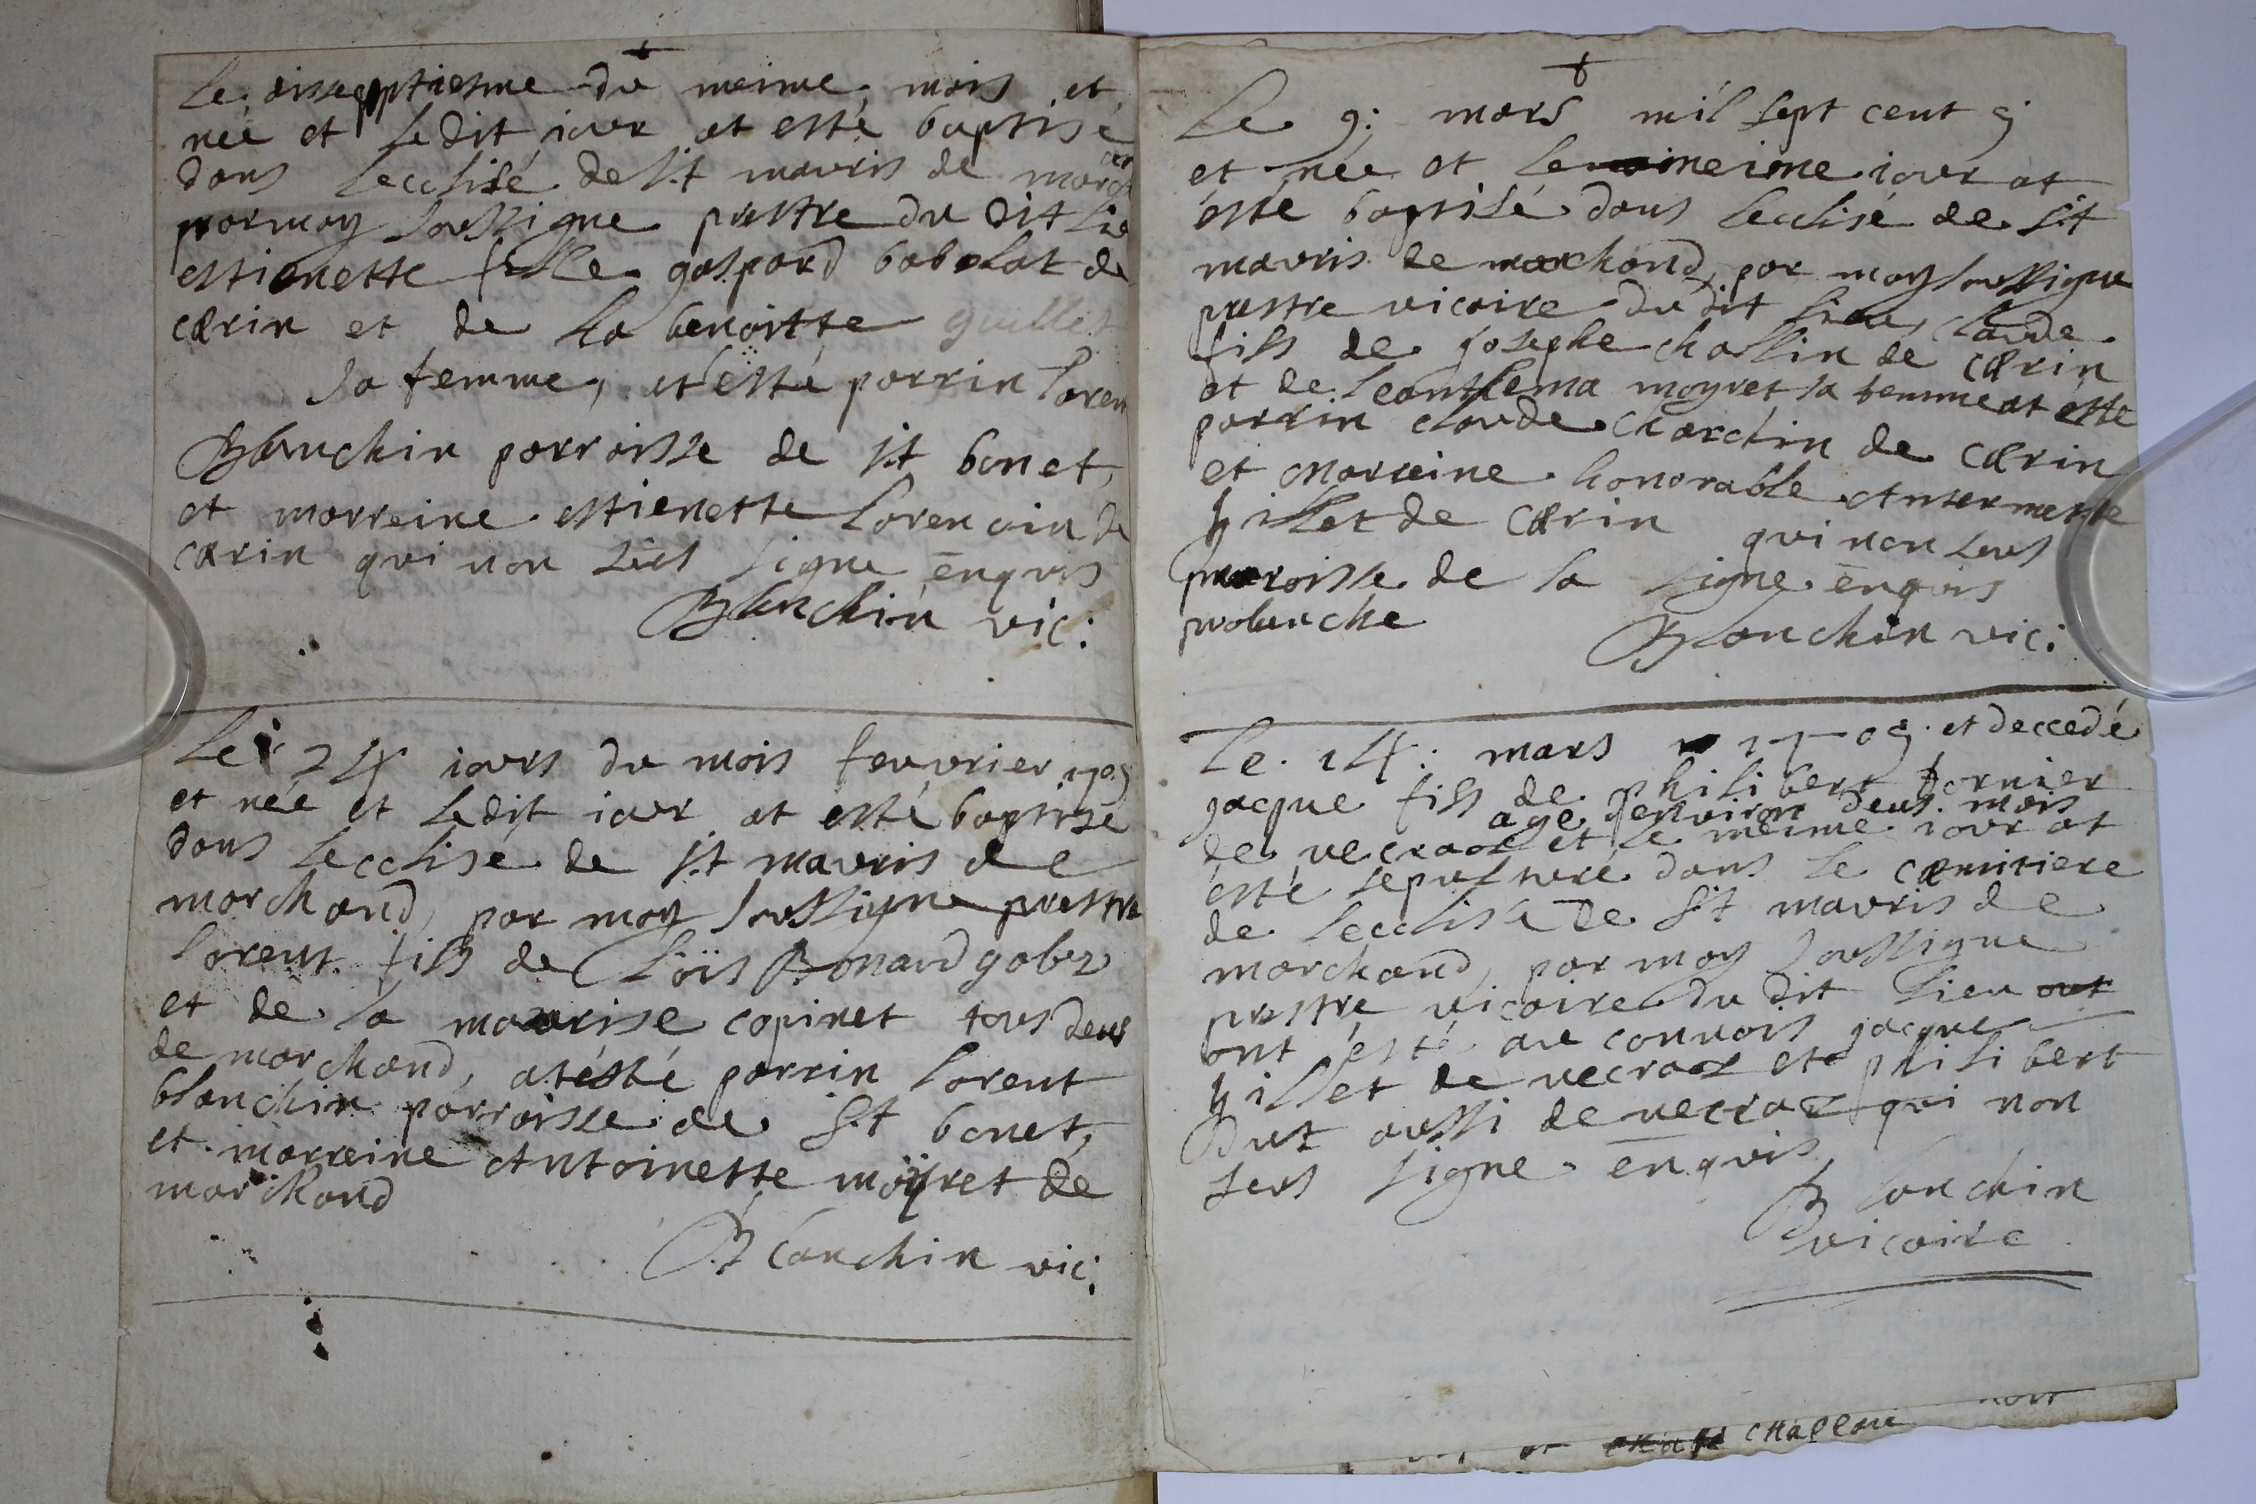 Le disseptiesme du meime mois et
née et ledit iour at esté baptisé
dans lecclise de st mauris de march
par moy soussigne prestre du dit lie
estienette fille gaspard babolat de
cerin et de la benoitte guillet
sa femme, at esté parrin loren
Blanchin parroisse de st bonet,
et marreine estienette lorencin de
cerin qui non sceus signe enquis
Blanchin vic:
Le 24 iours du mois feuvrier 1709
et née et ledit iour at esté baptisé
dans lecclise de st mauris de
marchand, par moy soussigne prestre
lorent fils de Loïs Bonard gabez
et de la maurise copinet tous deus
de marchand, at ésté parrin lorent
blanchin parroisse de st bonet,
et marreine Antoinette moÿret de
marchand
Blanchin vic:
Le 9: mars mil sept cent 9
et née et le meime iour at
esté baptisé dans lecclise de st
mauris de marchand, par moy soussigne
prestre vicaire du dit lieu, claude
fils de josephe chassin de cerin
et de leonthema moyret sa femme at esté
parrin claude charchin de cerin
et marreine honorable Antermette
hillet de cerin qui non sceus
parroisse de la signe enquis
pralanche
Blanchin vic:
Le 14: mars 1709 et deccedé
jacque fils de philibert fornier
age denviron deus mois
de vecraos et le meime iour at
esté sepulturé dans le cemitiere
de lecclise de st mauris de
marchand, par moy soussigne
prestre vicaire du dit lieu
ont ésté au convois jacque
hillet de vecraos et philibert
Dut aussi de vecraz qui non
sceus signe enquis,
Blanchin
vicaire
challou